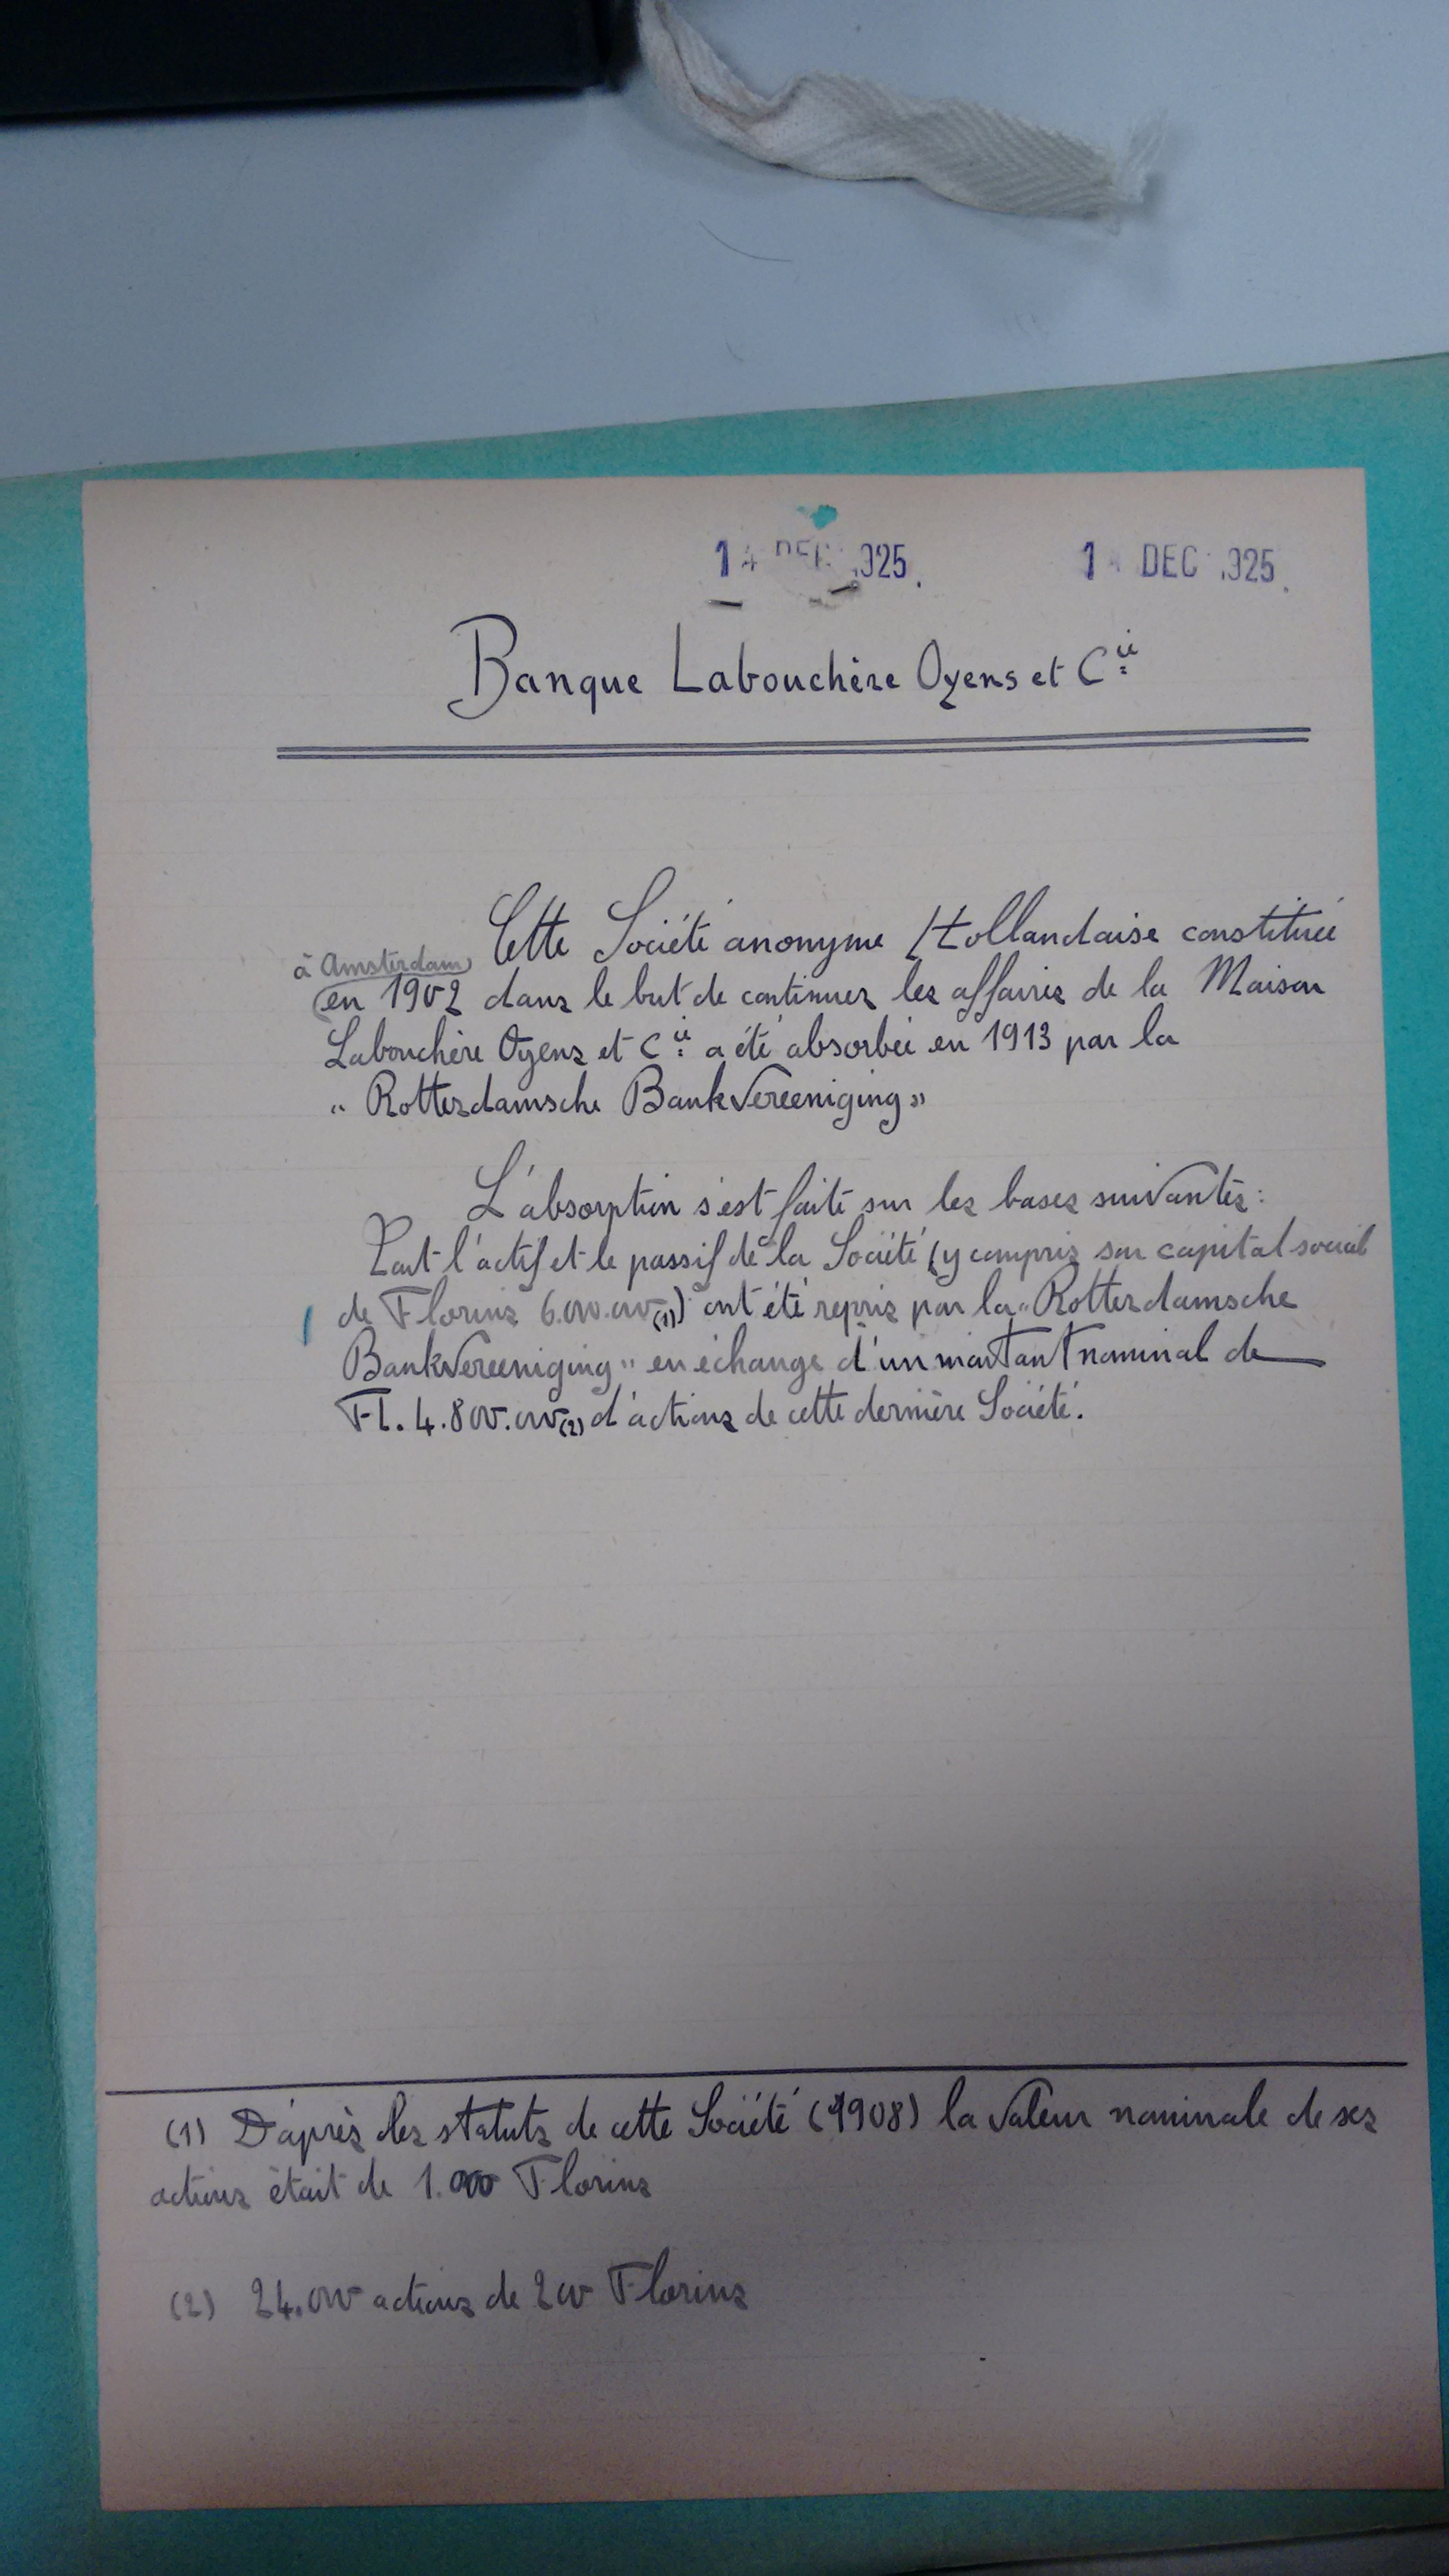 14 DEC 1925. 1 DEC 1925.
Banque Labouchère Oyens et Cie
Cette Société anonyme Hollandaise constituée
à Amsterdam
en 1902 dans le but de continuer les affaires de la Maison
Labouchère Oyens et Cie a été absorbée en 1913 par la
" Rotterdamsche BankVereeniging "
L'absorption s'est faite sur les bases suivantes :
Tout l'actif et le passif de la Société (y compris son capital social
de Florins 6.000.000 (1)) ont été repris par la " Rotterdamsche
BankVereeniging " en échange d'un montant nominal de
Fl. 4.800.000 (2) d'actions de cette dernière Société.
(1) D'après les statuts de cette Société (1908) la valeur nominale de ses
actions était de 1.000 Florins
(2) 24.000 actions de 200 Florins